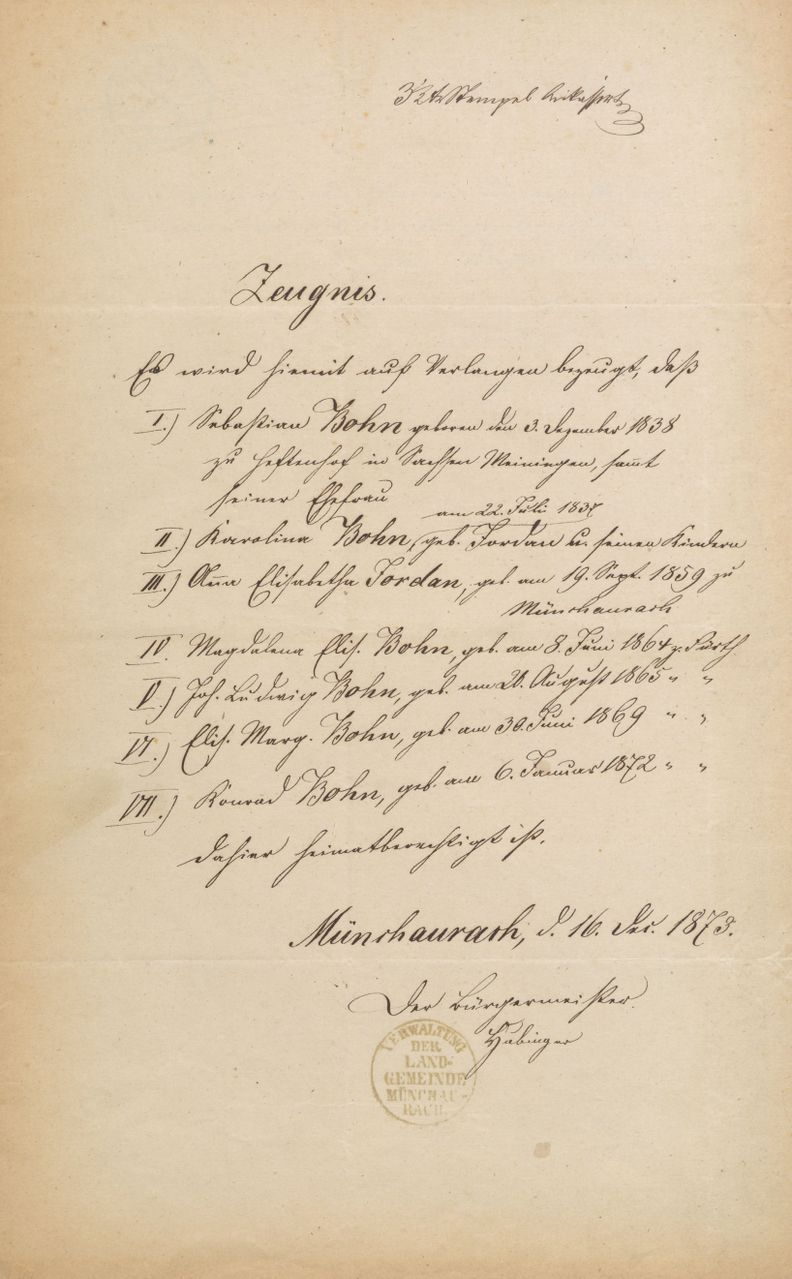 Stempel
Zeugnis.
Es wird hiemit auf Verlangen bezeugt, daß
I.) Sebastian Bohn geboren den 3. Dezember 1838
zu Heftenhof in Sachsen Meiningen, sammt
seiner Ehefrau
am 22. Juli 1837
II.) Karolina Bohn, geb. Jordan u. seinen Kindern
III.) Anna Elisabetha Jordan, geb. am 19. Sept. 1859 zu
Münchaurach
IV. Magdalena Elis. Bohn, geb. am 8. Juni 1864 z. Fürth
V.) Joh. Ludwig Bohn, geb. am August 1865 " "
VI.) Elis. Marg. Bohn, geb. am 30. Juni 1869 " "
VII.) Konrad Bohn, geb. am 6. Januar 1872 " "
dahier heimatberechtigt ist.
Münchaurach, d. 16. Dec. 1873.
Der Bürgermeister
Hubinger
VERWALTUNG
DER
LAND-
GEMEINDE
MÜNCHAU-
RACH.